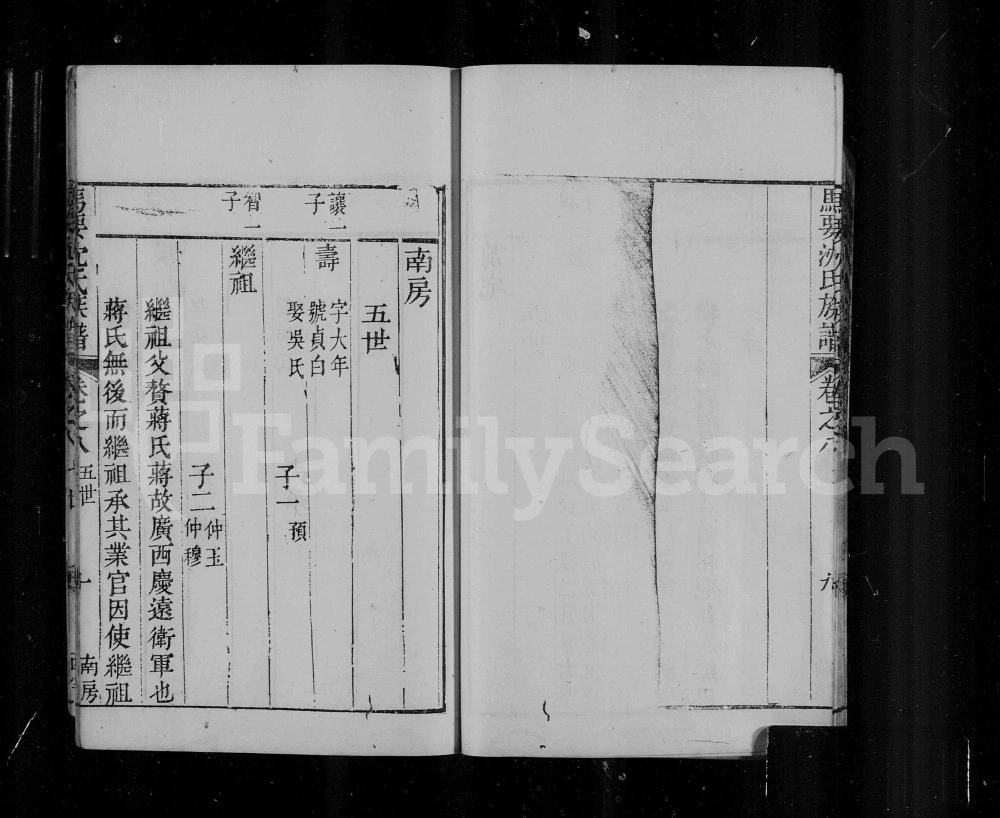 馬要沈氏族譜
卷之八
六
南房
五世
讓一子
壽
字大年
號貞白
娶吳氏
子一
預
智一子
繼祖
子二
仲玉
仲穆
繼祖父贅蔣氏蔣故廣西慶遠衛軍也
蔣氏無後而繼祖承其業官因使繼祖
沈氏族譜
卷之八
五世
南房
FamilySearch